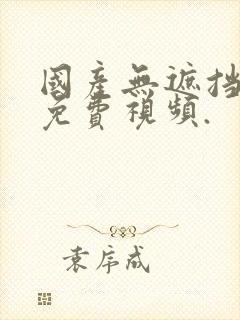 國產無遮挡
免費視頻.
袁序成